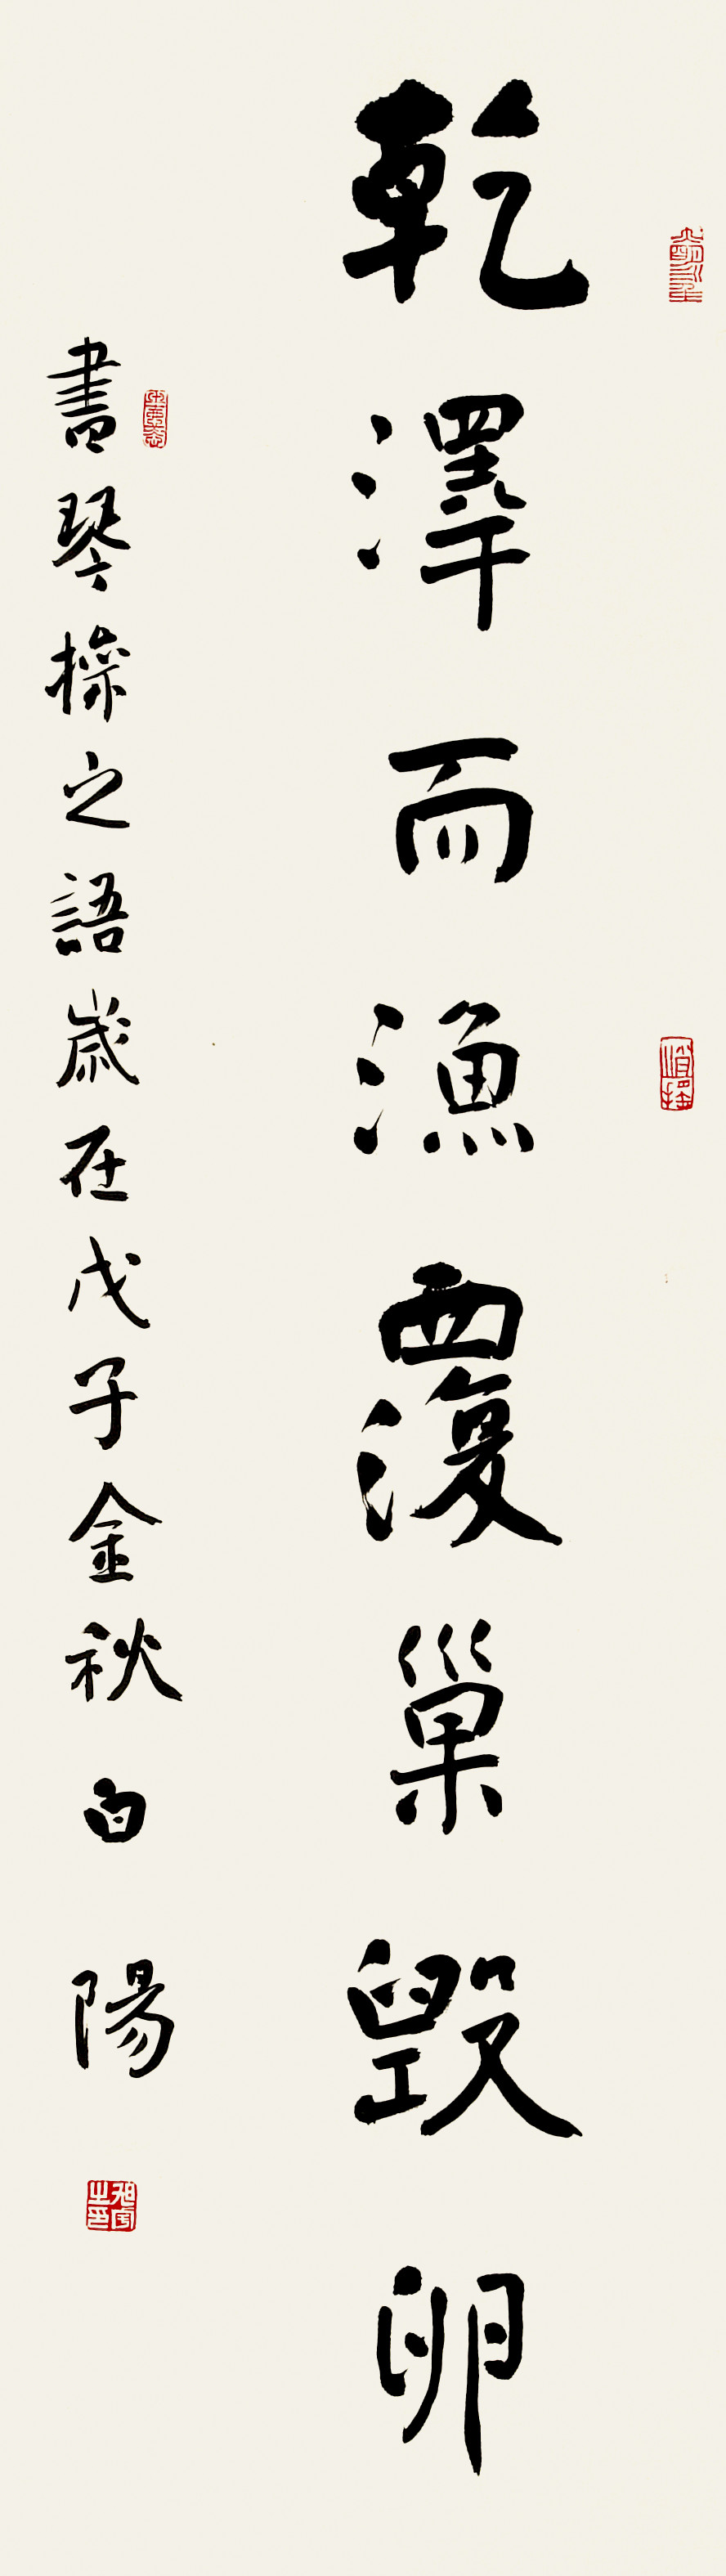 乾澤而漁覆巢毀卵
書琴操之語歲在戊子金秋白陽